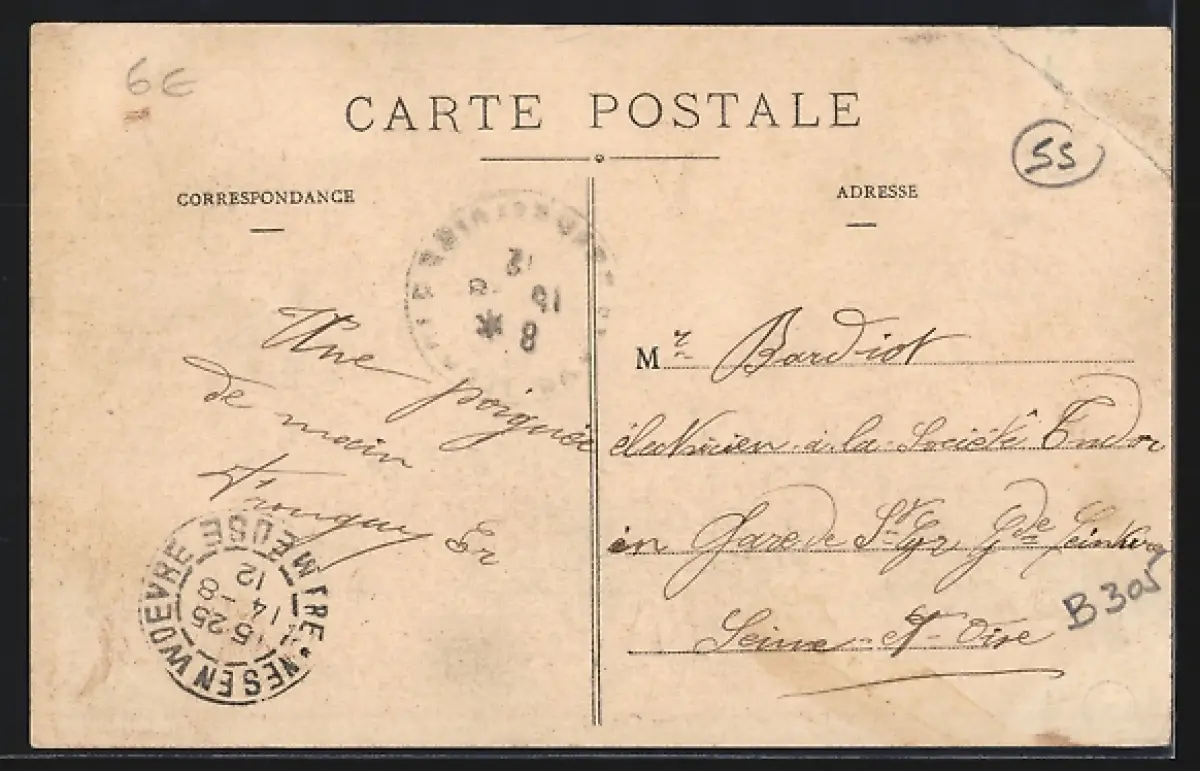 6€
CARTE POSTALE
55
CORRESPONDANCE
ADRESSE
12
15
8
*
Une poignée
de main
Er
FRESNES EN WOEVRE MEUSE
15 25
14 - 8
12
Mr Bardiot
électricien à la Société Tudor
en Gare de St Cyr Gde Ceinture
Seine-et-Oise
B305